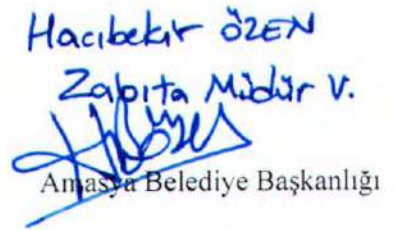 Hacıbekir ÖZEN
Zabıta Müdür V.
Amasya Belediye Başkanlığı